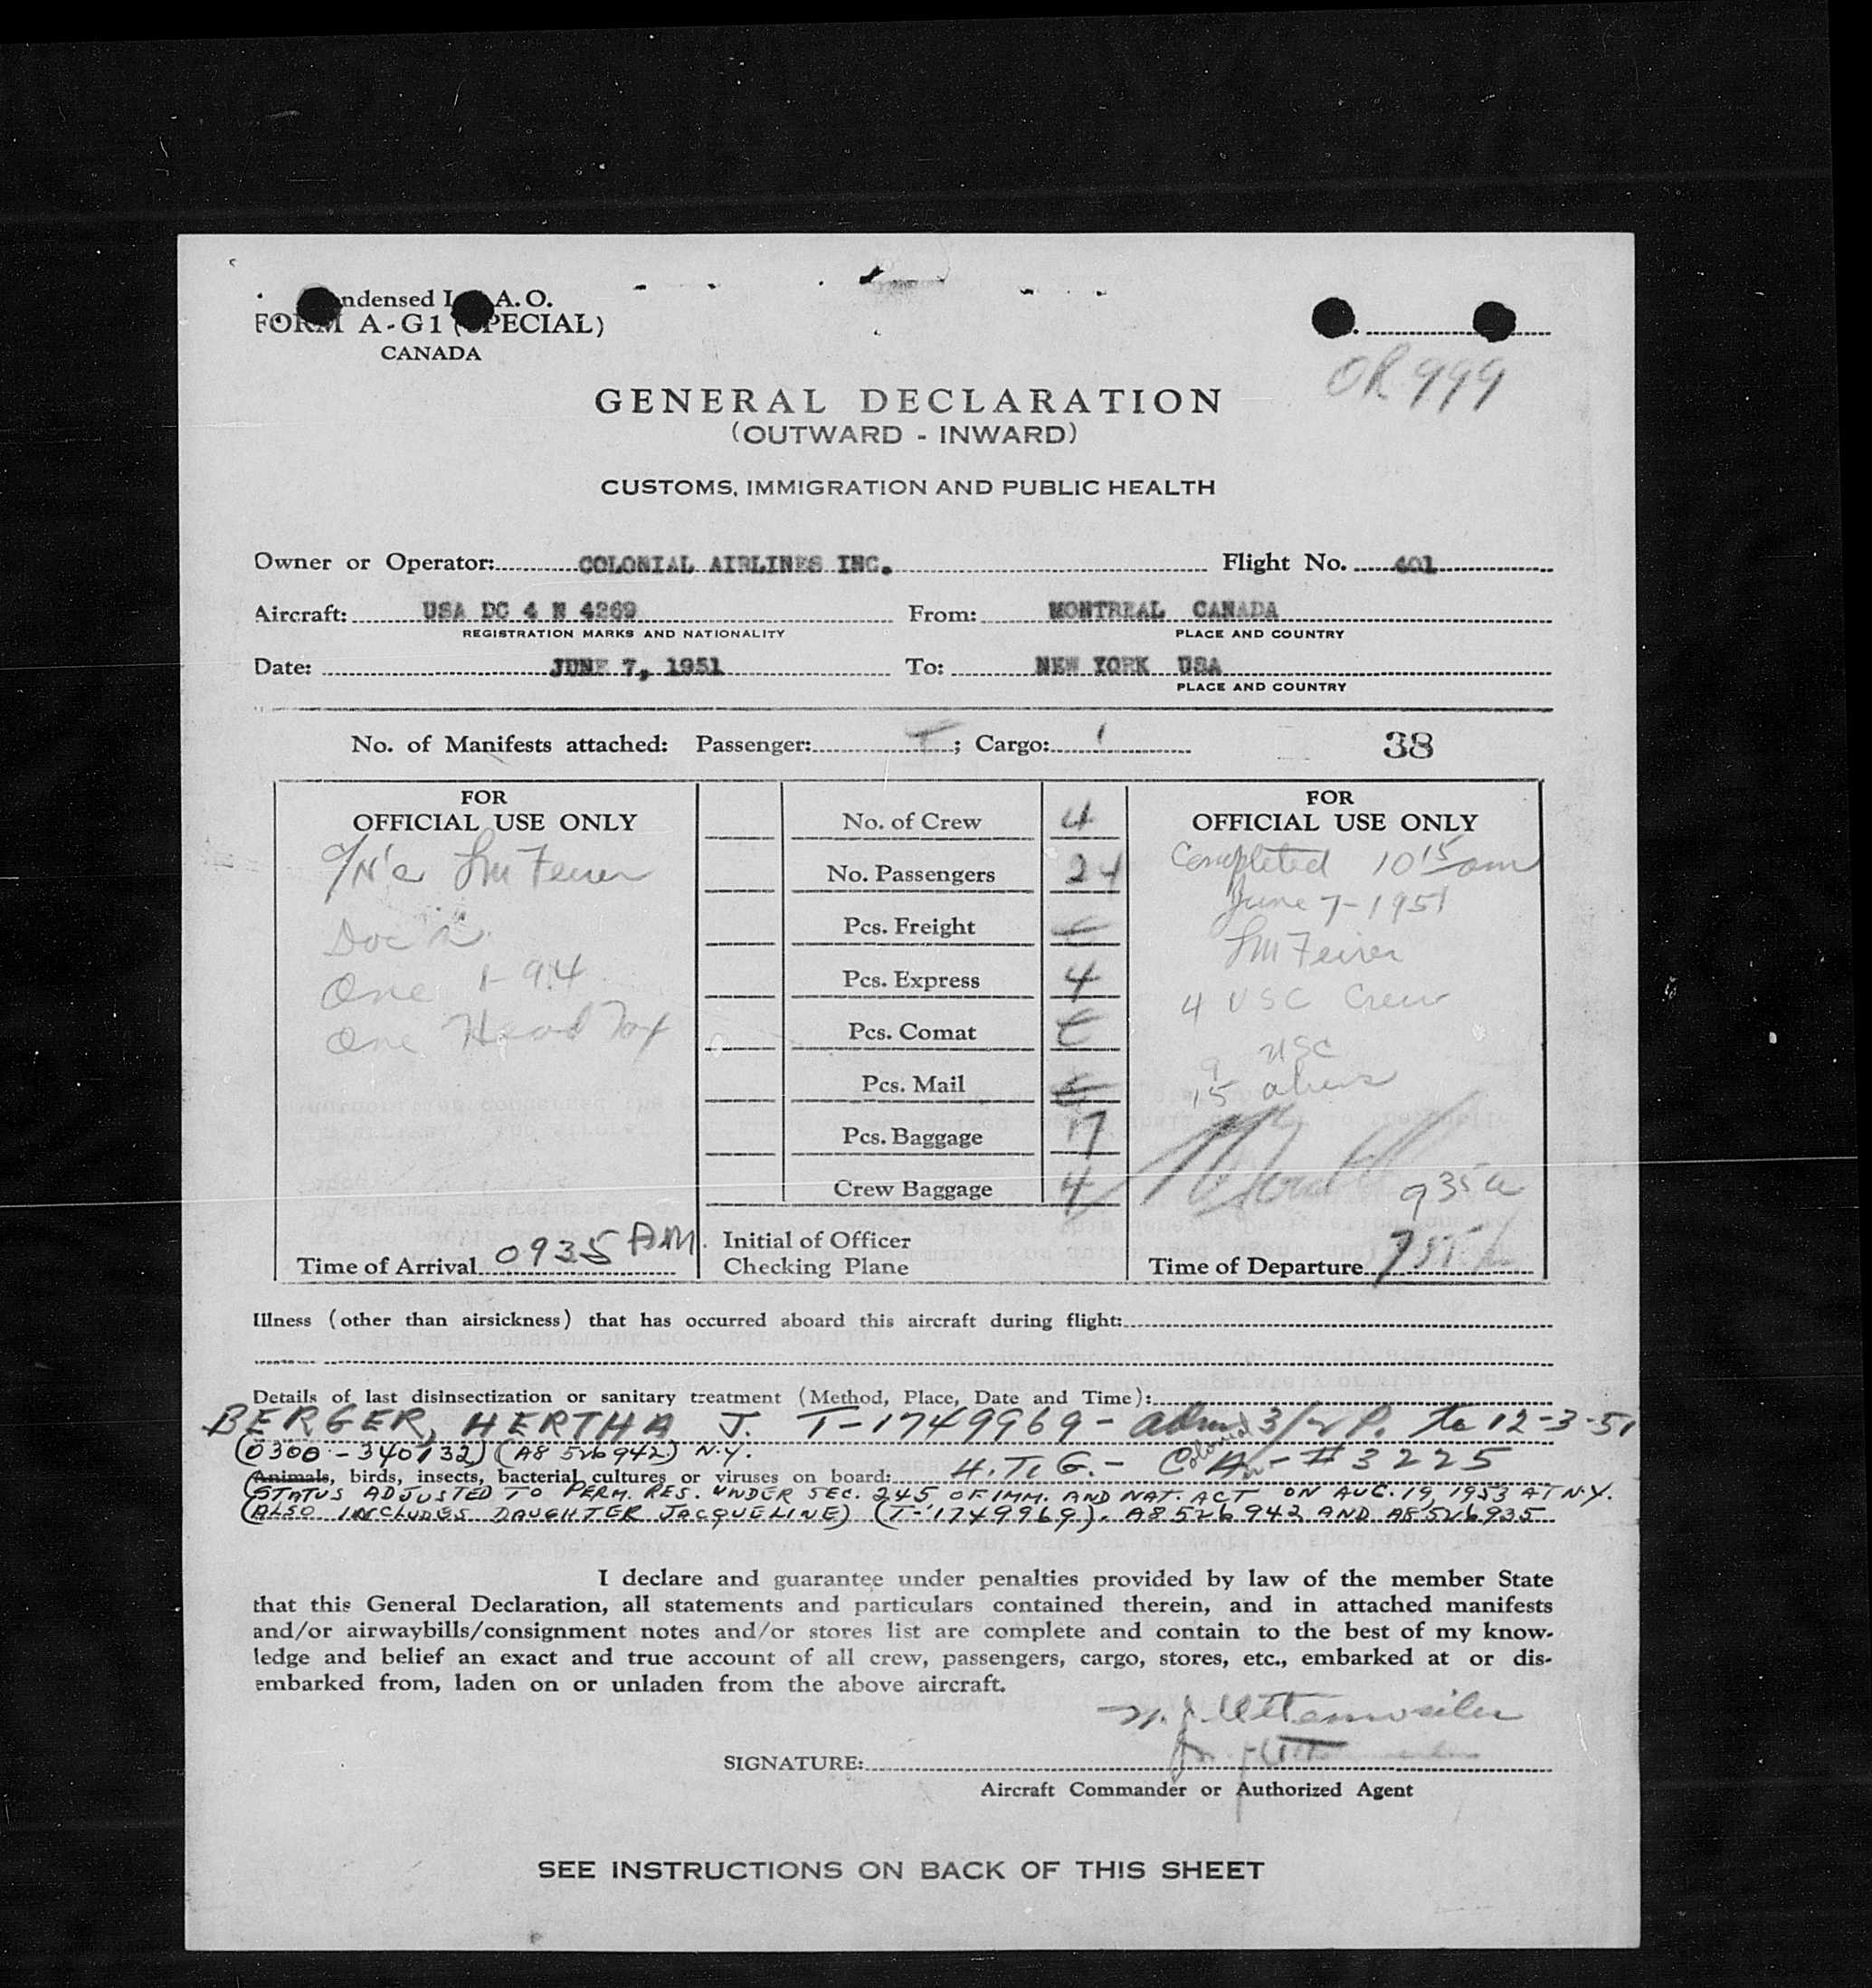 ndensed I A.O.
FORM A-G1 (SPECIAL)
CANADA
OR 999
GENERAL DECLARATION
(OUTWARD - INWARD)
CUSTOMS, IMMIGRATION AND PUBLIC HEALTH
Owner or Operator: COLONIAL AIRLINES INC. Flight No. 401
Aircraft: USA DC 4 N 4269 From: MONTREAL CANADA
REGISTRATION MARKS AND NATIONALITY PLACE AND COUNTRY
Date: JUNE 7, 1951 To: NEW YORK USA
PLACE AND COUNTRY
No. of Manifests attached: Passenger: ; Cargo: 1 38
FOR
OFFICIAL USE ONLY
One 1-94
One Head Tax
Time of Arrival 0935 AM.
No. of Crew 4
No. Passengers 24
Pcs. Freight
Pcs. Express 4
Pcs. Comat
Pcs. Mail
Pcs. Baggage 17
Crew Baggage 4
Initial of Officer
Checking Plane
FOR
OFFICIAL USE ONLY
Completed 10 15 am
June 7-1951
4 USC Crew
9 USC
15 aliens
935a
Time of Departure
Illness (other than airsickness) that has occurred aboard this aircraft during flight:
Details of last disinsectization or sanitary treatment (Method, Place, Date and Time):
BERGER, HERTHA J. T-1749969- adm 3/2 P. to 12-3-51
(0300-340132) (A8 526942) N.Y.
Animals, birds, insects, bacterial cultures or viruses on board: H.T.G.- Colonial #3225
(STATUS ADJUSTED TO PERM. RES. UNDER SEC. 245 OF IMM. AND NAT. ACT ON AUG. 19, 1953 AT N.Y.
(ALSO INCLUDES DAUGHTER JACQUELINE) (T-1749969). A8526942 AND A8526935
I declare and guarantee under penalties provided by law of the member State
that this General Declaration, all statements and particulars contained therein, and in attached manifests
and/or airwaybills/consignment notes and/or stores list are complete and contain to the best of my know-
ledge and belief an exact and true account of all crew, passengers, cargo, stores, etc., embarked at or dis-
embarked from, laden on or unladen from the above aircraft.
SIGNATURE:
Aircraft Commander or Authorized Agent
SEE INSTRUCTIONS ON BACK OF THIS SHEET